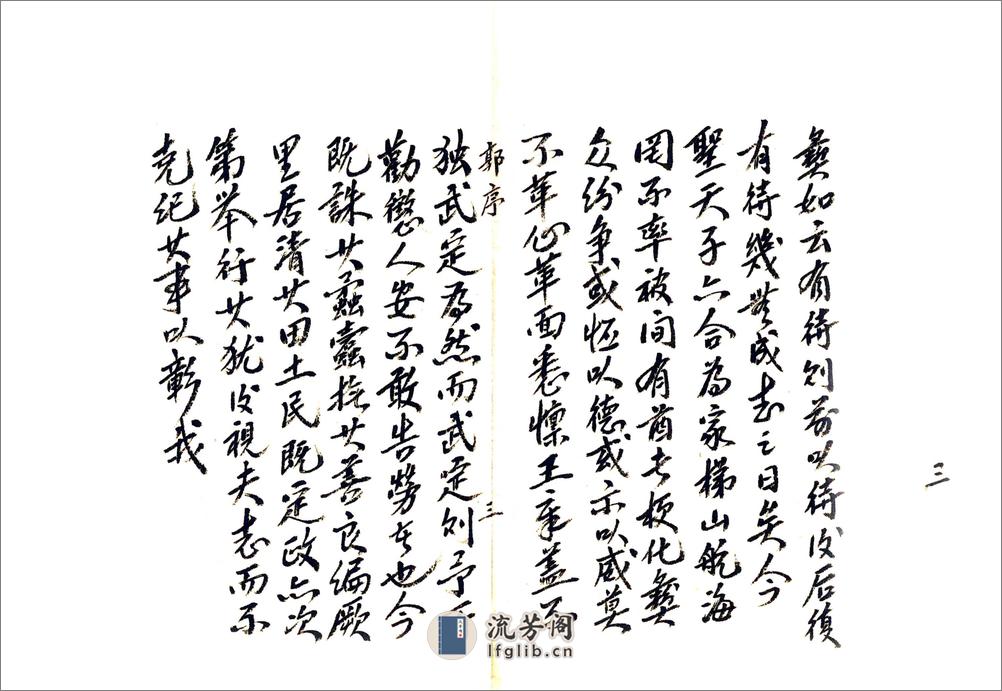 三
彝如云有待则前以待後后復
有待幾無成志之日矣今
聖天子六合為家梯山航海
罔不率被间有酋長梗化彝
众纷争或怀以德或示以威莫
不革心革面悉懔王章盖不
郭序 三
独武定為然而武定则予所
勸懲人安不敢告勞者也今
既誅其蠹抚其善良编厥
里居清其田土民既定政亦次
第举行其犹視夫志而不
克纪其事以彰我
流芳阁
lfglib.cn